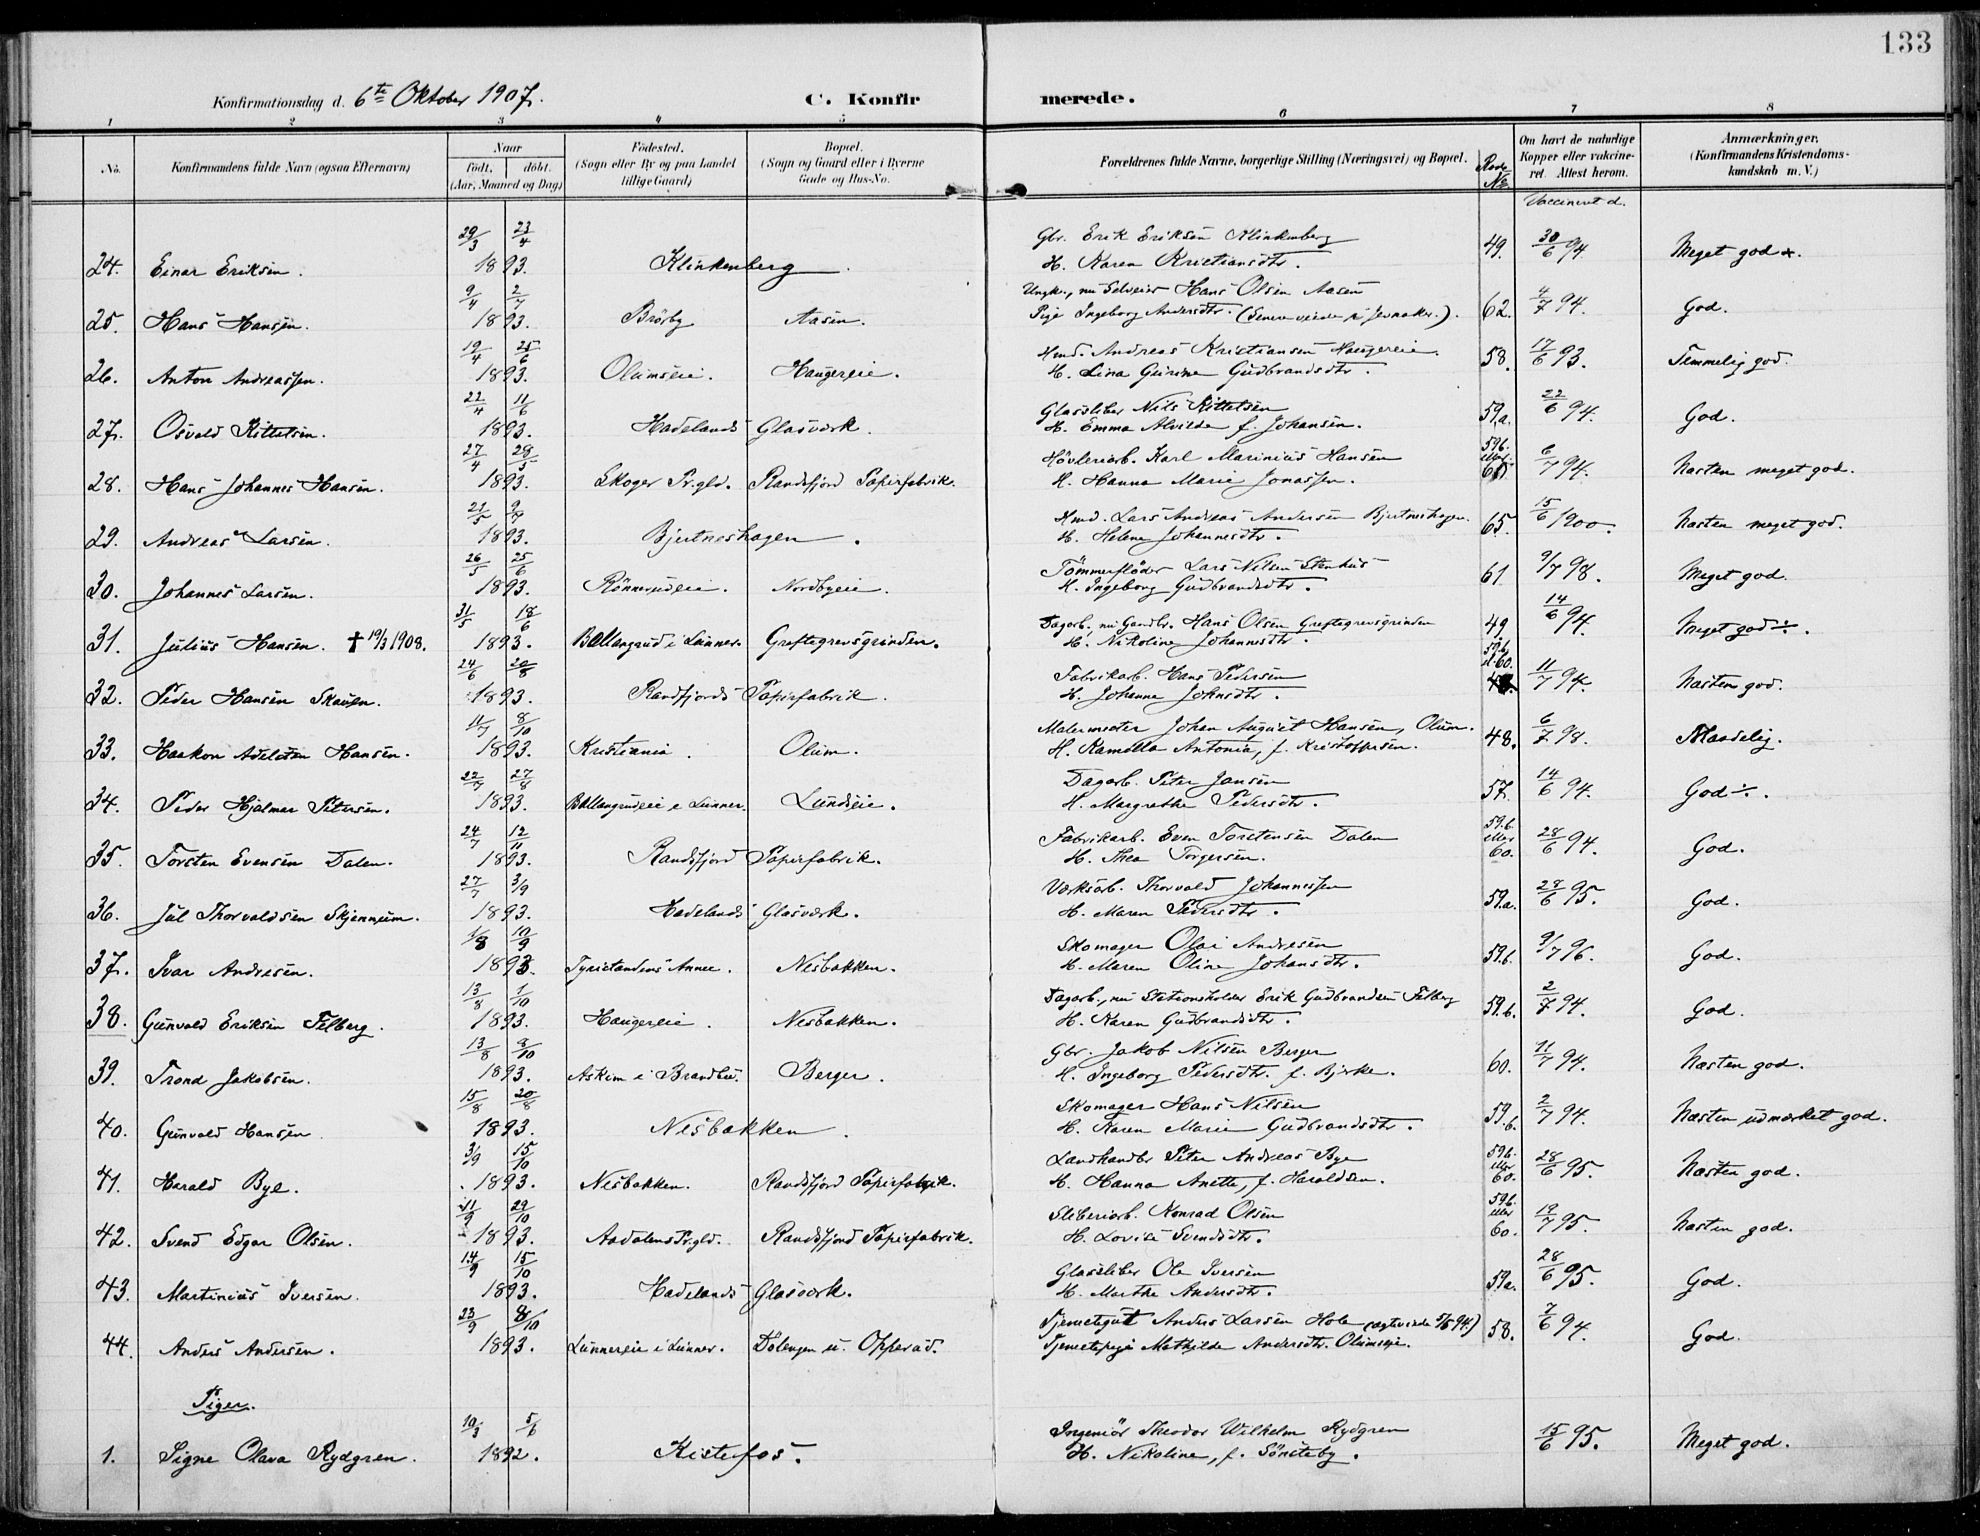 133
Konfirmationsdag d. 6te Oktober 1907. C. Konfirmerede.
1 2 3 4 5 6 7 8
No. Konfirmandens fulde Navn (ogsaa Efternavn) Naar født, døbt. (Aar, Maaned og Dag) Fødested. (Sogn eller By og paa Landet tillige Gaard) Bopæl. (Sogn og Gaard eller i Byerne Gade og Hus-No. Forældrenes fulde Navne, borgerlige Stilling (Næringsvei) og Bopæl. Rode No Om havt de naturlige Kopper eller vakcineret. Attest herom. Anmærkninger. (Konfirmandens Kristendomskundskab m. V.)
Vaccineret d.
29/3 23/4 Gbr. Erik Eriksen Klinkenberg
24. Einar Eriksen. 1893. Klinkenberg. H. Karen Kristiansdtr. 49. 30/6 94. Meget god +.
9/4 2/7 Ungk., nu Selveier Hans Olsen Aasen
25. Hans Hansen. 1893. Brörby Aasen. Pige Ingeborg Andersdtr. 62. 4/7 94. God.
19/4 25/6 Hmd. Andreas Kristiansen Haugereie.
26. Anton Andreassen. 1893. Olumseie. Haugereie. H. Lina Gurine Gudbrandsdtr. 58. 17/6 93. Temmelig god.
22/4 11/6 Glassliber Nils Kittelsen
27. Osvald Kittelsen. 1893. Hadelands Glasværk. H. Emma Alvilde f. Johansen. 59.a. 22/6 94. God.
27/4 28/5 Høvleriarb. Karl Marinius Hansen 59b. eller
28. Hans Johannes Hansen. 1893. Skoger Pr.gld. Randsfjord Papirfabrik. H. Hanna Marie Jonassen. 60. 6/7 94. Næsten meget god.
21/5 9/7 Hmd. Lars Andreas Andersen Bjertneshagen.
29. Andreas Larsen. 1893. Bjertneshagen. H. Helene Johannesdtr. 65. 15/6 1900. Næsten meget god.
26/5 25/6 Tömmerfløder Lars Nilsen Stenhus
30. Johannes Larsen. 1893. Rönnerudeie. Nordbyeie. H. Ingeborg Gudbrandsdtr. 61. 9/7 98. Meget god.
31/5 18/6 Dagarb., nu Gaardbr. Hans Olsen Greftegrevsgrinden
31. Julius Hansen. † 19/3 1908. 1893. Ballangrud i Lunner. Greftegrevsgrinden. H. Nikoline Johannesdtr. 49. 14/6 94. Meget god ÷.
24/6 20/8 Fabrikarb. Hans Pedersen 59.b. el. 60.
32. Peder Hansen Skougen. 1893. Randsfjords Papirfabrik. H. Johanne Johnsdtr. 11/7 94. Næsten god.
11/7 8/10 Malermester Johan August Hansen, Olum.
33. Haakon Adelsten Hansen. 1893. Kristiania. Olum. H. Kamilla Antonia, f. Kristoffersen. 48. 6/7 98. Maadelig.
22/7 27/8 Dagarb. Peter Jansen
34. Peder Hjalmar Petersen. 1893. Ballangrudeie i Lunner. Lundseie. H. Margrethe Pedersdtr. 57. 14/6 94. God ÷.
24/7 12/11 Fabrikarb. Even Torstensen Dalen 59.b. eller
35. Torsten Evensen Dalen. 1893. Randsfjord Papirfabrik. H. Thea Torgersen. 60. 28/6 94. God.
27/7 3/9 Værksarb. Thorvald Johannessen
36. Jul Thorvaldsen Skjennum. 1893. Hadelands Glasværk. H. Maren Pedersdtr. 59.a. 28/6 95. God.
1/8 10/9 Skomager Olai Andresen
37. Ivar Andresen. 1893. Tyristrandens Annex. Nesbakken. H. Maren Oline Johansdtr. 59.b. 9/7 96. God.
13/8 1/10 Dagarb., nu Stationsholder Erik Gudbrandsen Felberg
38. Gunvald Eriksen Felberg. 1893. Haugereie. Nesbakken. H. Karen Gudbrandsdtr. 59.b. 2/7 94. God.
13/8 8/10 Gbr. Jakob Nilsen Berger
39. Trond Jakobsen. 1893. Askim i Brandbu. Berger. H. Ingeborg Pedersdtr. f. Bjerke. 60. 11/7 94. Næsten god.
15/8 20/8 Skomager Hans Nilsen
40. Gunvald Hansen 1893. Nesbakken. H. Karen Marie Gudbrandsdtr. 59.b. 2/7 94. Næsten udmærket god.
3/9 15/10 Landhandler Peter Andreas Bye 59.b. eller
41. Harald Bye. 1893. Nesbakken. Randsfjord Papirfabrik. H. Hanna Anette, f. Haroldsen. 60. 28/6 95. Næsten god.
11/9 29/10 Sliberiarb. Konrad Olsen 59.b. eller
42. Svend Edgar Olsen. 1893. Aadalens Pr.gld. Randsfjord Papirfabrik. H. Lovise Svendsdtr. 60. 19/7 95. Næsten god.
14/9 15/10 Glassliber Ole Iversen
43. Martinius Iversen. 1893. Hadelands Glasværk. H. Marthe Andersdtr. 59.a. 28/6 95. God.
23/9 8/10 Tjenestegut Anders Larsen Hole
44. Anders Andersen. 1893. Lunnereie i Lunner. Dölengen u. Opperud. Tjenestepige Mathilde Andersdtr. Olumseie. 58. 7/6 94. God.
Piger.
10/3 5/6 Ingeniör Theodor Wilhelm Rydgren
1. Signe Olava Rydgren. 1892. Kistefos. H. Nikoline, f. Sönsteby. 15/6 95. Meget god.